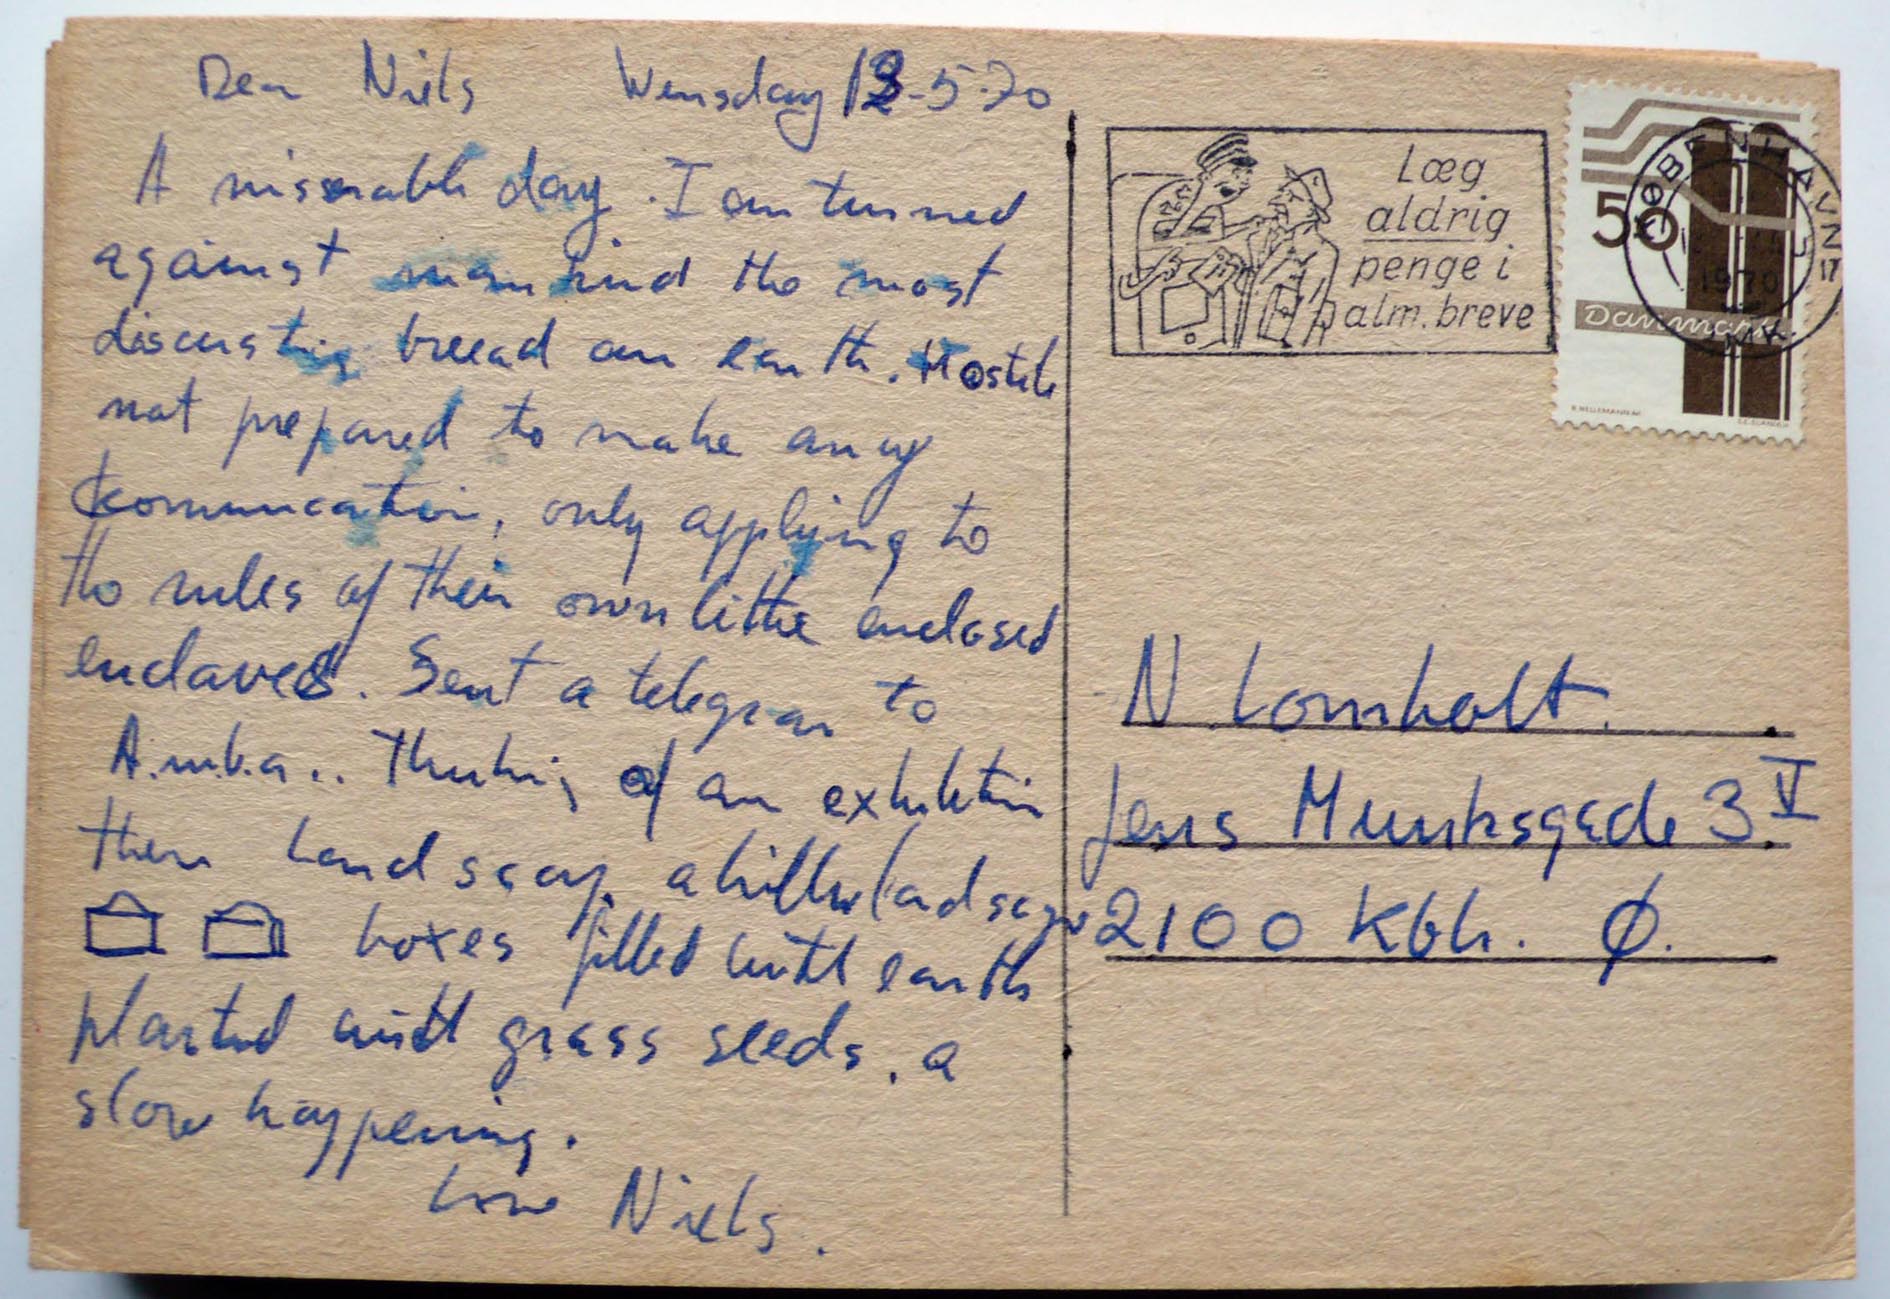 Dear Niels Wensday 13-5-70
A misserable day. I am turned
against mankind the most
discusting breead on earth. Hostile
not prepared to make any
komunication, only applying to
the rules of their own little enclosed
enclaves. Sent a telegram to
A.m.b.a.. Thinking of an exhibition
then landscap, a hillw ladscape
boxes filled with earth
planted with grass seeds. a
slow happening.
Love Niels.
Læg
aldrig
penge i
alm. breve
KØBENHAVN
1970
17
50
Danmark
N Lomholt.
Jens Munksgade 3 V
2100 Kbh. Ø.